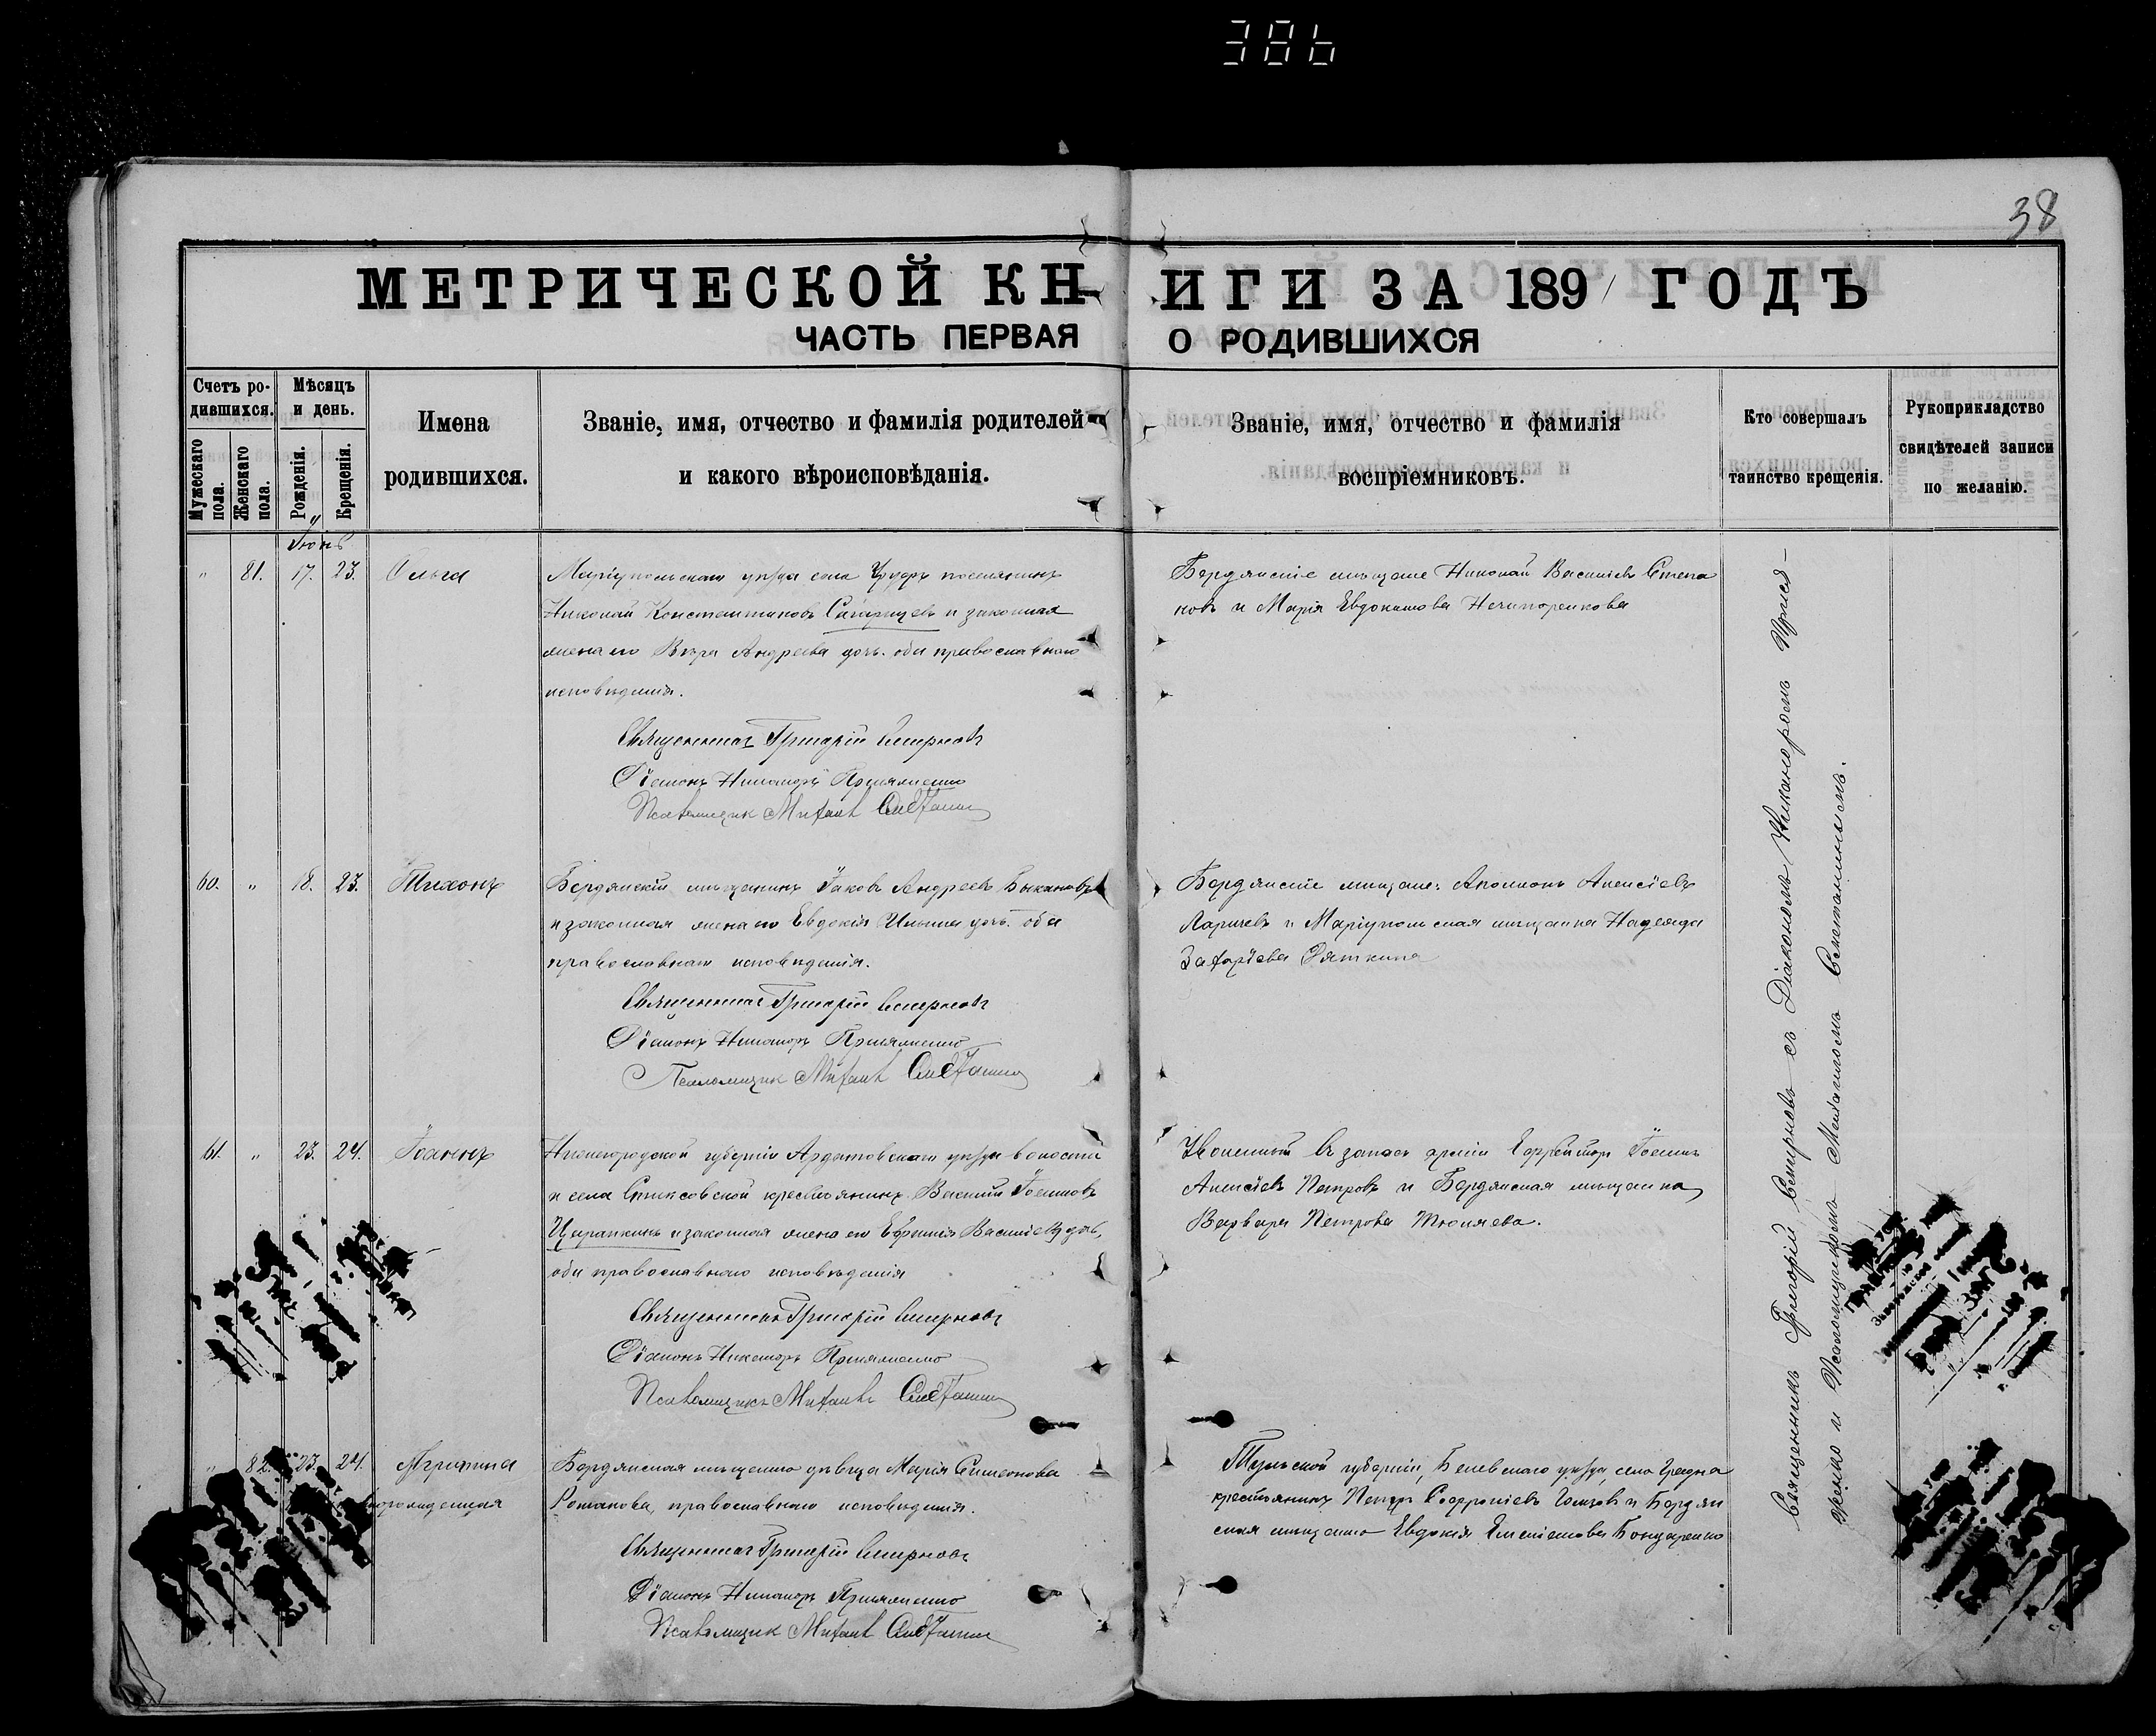 386
38
МЕТРИЧЕСКОЙ КНИГИ ЗА 1891 ГОДЪ
ЧАСТЬ ПЕРВАЯ О РОДИВШИХСЯ
Счетъ ро-
дившихся.
Мужескаго
пола.
Женскаго
пола.
Мѣсяцъ
и день.
Рожденія.
Крещенія.
Имена
родившихся.
Званіе, имя, отчество и фамилія родителей
и какого вѣроисповѣданія.
Званіе, имя, отчество и фамилія
воспріемниковъ.
Кто совершалъ
таинство крещенія.
Рукоприкладство
свидѣтелей записи
по желанію.
Іюнь
" 81. 17. 23. Ольга
Маріупольскаго уѣзда села поселянинъ
Николай Константиновъ и законная
жена его Вѣра Андреева дочь. оба православнаго
исповѣданія.
Священникъ Григорій Смирновъ
Діаконъ Никаноръ
Псаломщикъ Михаилъ
Бердянскіе мѣщане Николай Васильевъ Степа
новъ и Марія Евдокимова Нечипоренкова
60. " 18. 23. Тихонъ
Бердянскій мѣщанинъ Іаковъ Андреевъ Быкановъ
и законная жена его Евдокія Ильина дочь. оба
православнаго исповѣданія.
Священникъ Григорій Смирновъ
Діаконъ Никаноръ
Псаломщикъ Михаилъ
Бердянскіе мѣщане: Алексіевъ
Ларичевъ и Маріупольская мѣщанка Надежда
Захаріева Дяткина
61. " 23. 24. Іоаннъ
Нижегородской губерніи Ардатовскаго уѣзда волости
и села Стексовской крестьянинъ Василій Іоанновъ
Царапкинъ и законная жена его Васильева дочь,
оба православнаго исповѣданія
Священникъ Григорій Смирновъ
Діаконъ Никаноръ
Псаломщикъ Михаилъ
Уволенный въ запасъ арміи Ефрейторъ Іоаннъ
Алексіевъ Петровъ и Бердянская мѣщанка
Варвара Петрова Тюняева.
" 82. 23. 24. Агрипина
незаконорожденная
Бердянская мѣщанка дѣвица Марія Симеонова
Романова, православнаго исповѣданія.
Священникъ Григорій Смирновъ
Діаконъ Никаноръ
Псаломщикъ Михаилъ
Тульской губерніи, Белевскаго уѣзда, села
крестьянинъ Петръ Софроніевъ и Бердян
ская мѣщанка Евдокія Бондаренко
Священникъ Григорій Смирновъ съ Діакономъ Никаноромъ
и Псаломщикомъ Михаиломъ